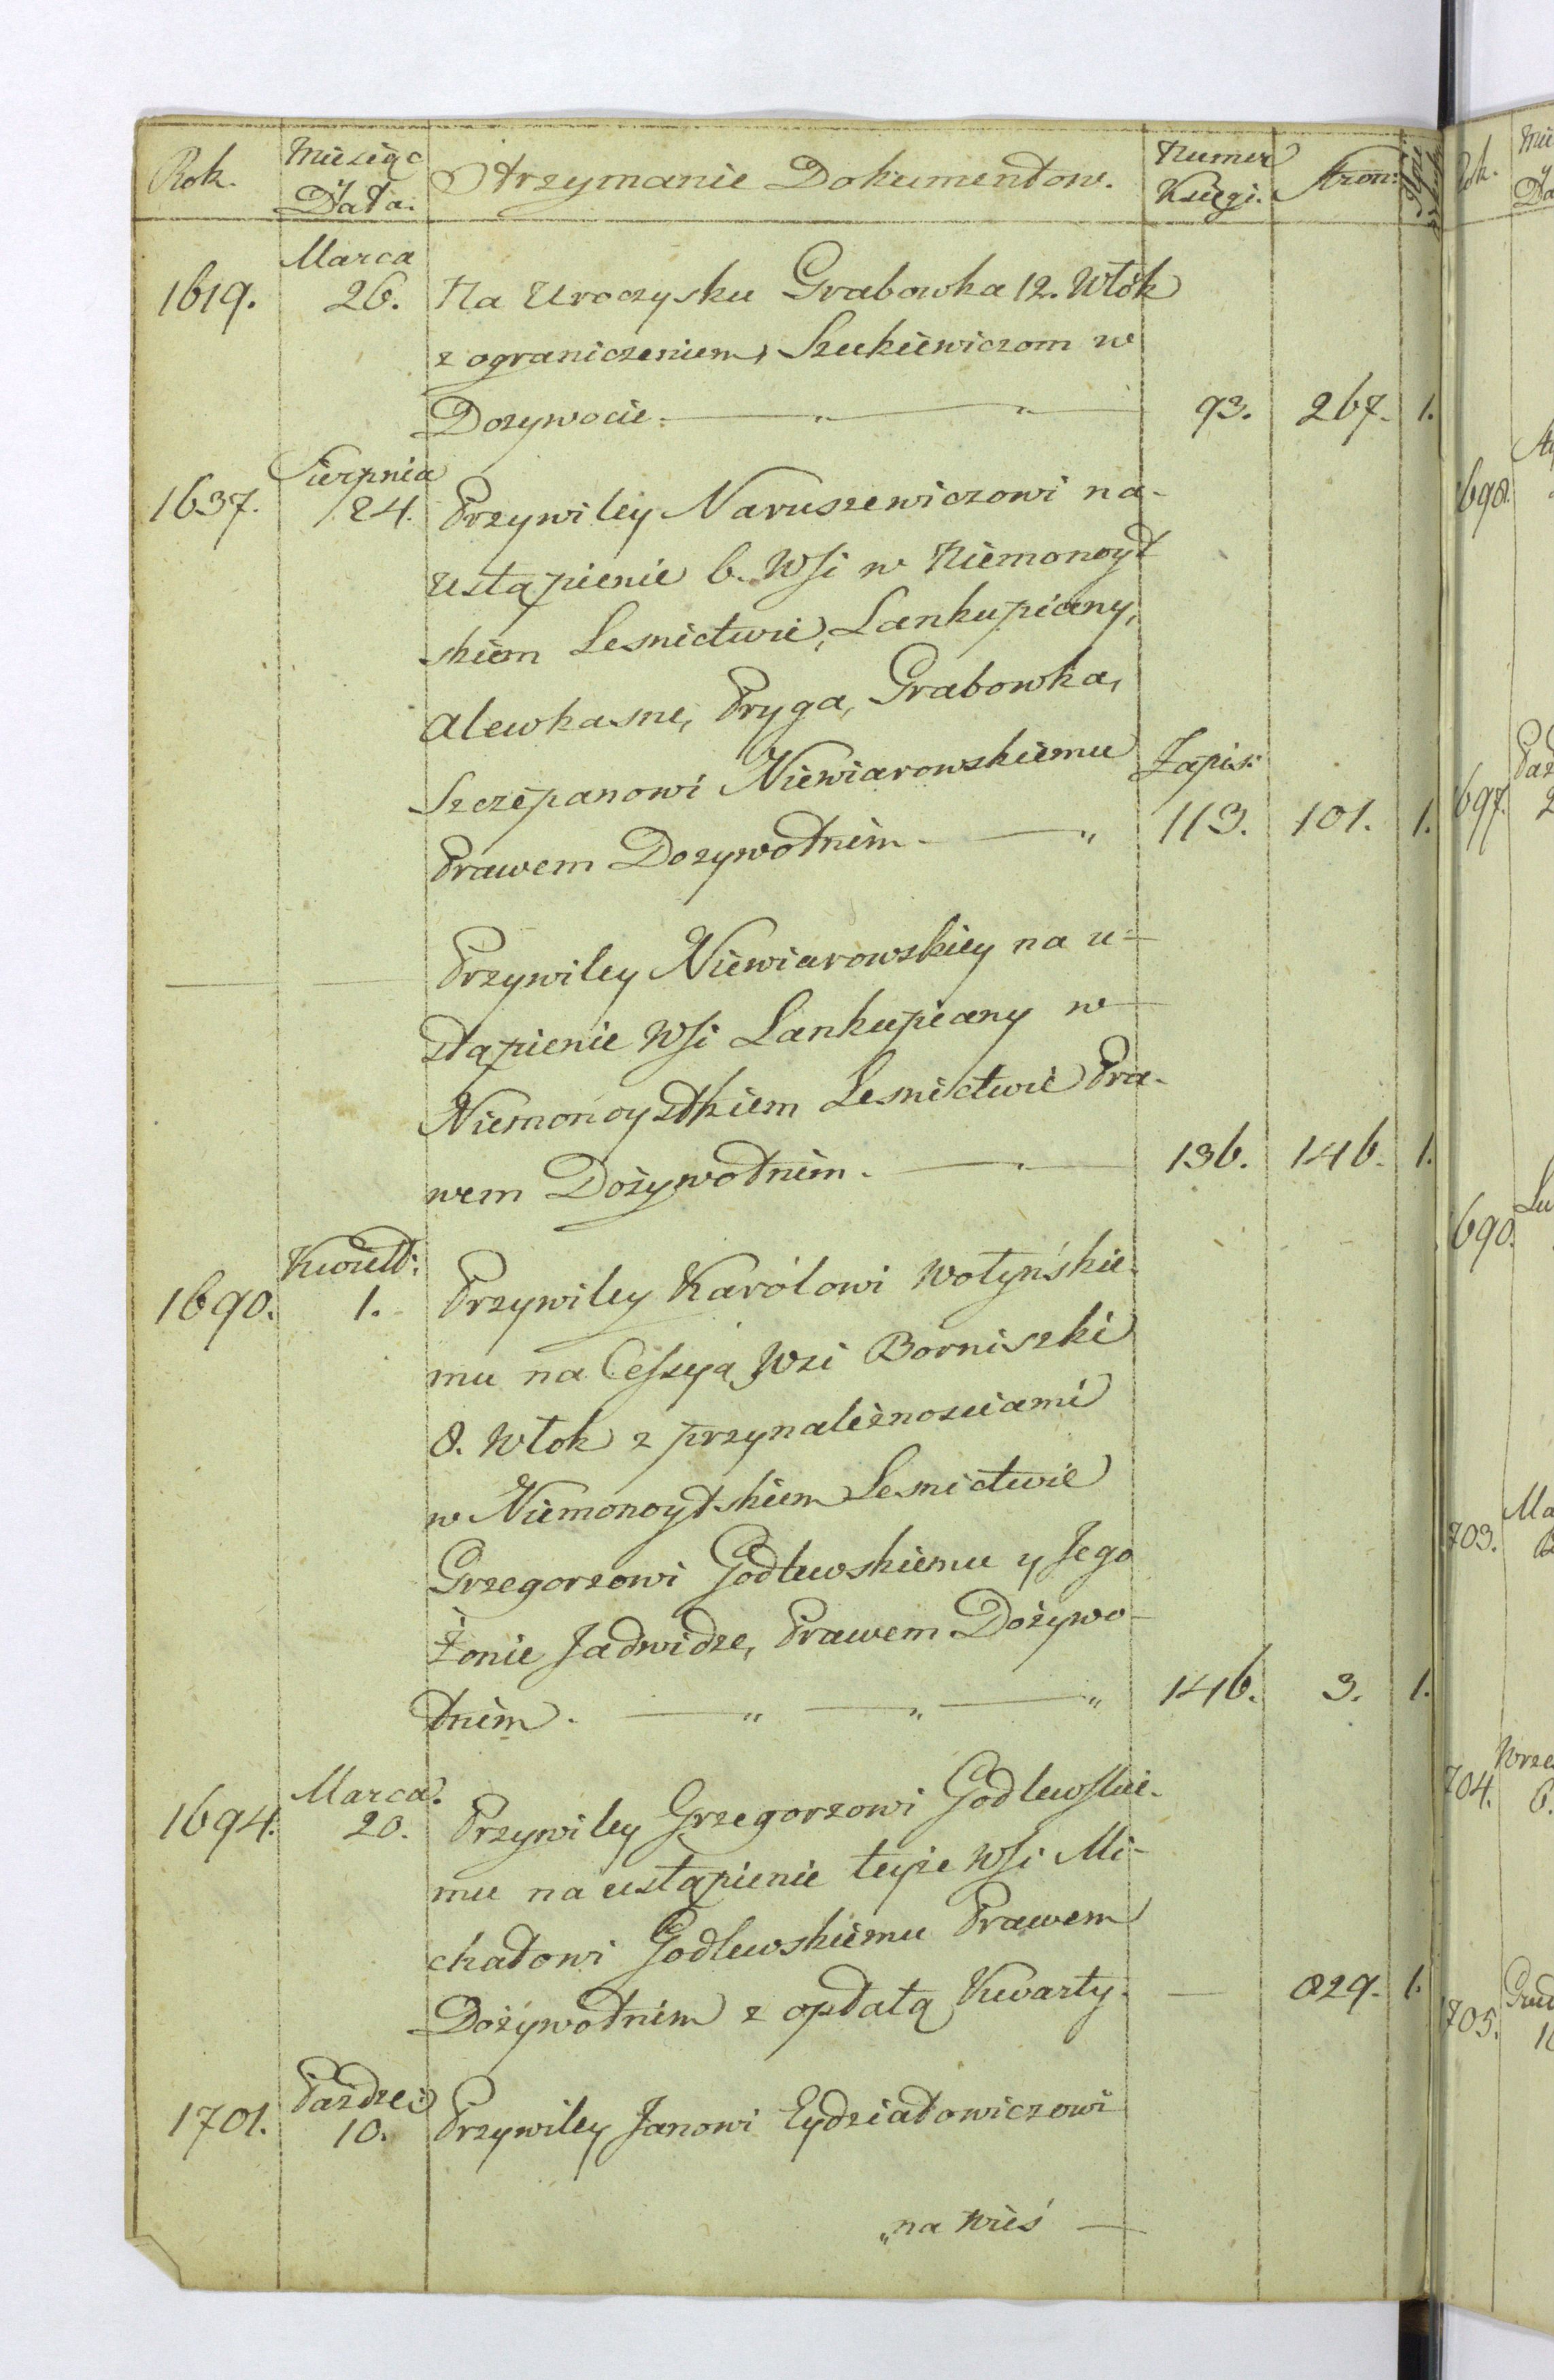 Rok. Miesiąc Otrzymanie Dokumentow. Numer Stron:
Data. Księgi.
Marca
1619. 26. Na Uroczysku Grabowka 12. Włok
z ograniczeniem, Szukiewiczom w
Dozywocie. 93. 267. 1.
Sierpnia
1637. 24. Przywiley Naruszewiczowi na
ustąpienie 6. Wsi w Niemonoyt
skiem Lesnictwie, Lankupiany,
Alewkasne, Pryga, Grabowka,
Szczepanowi Niewiarowskiemu Zapis:
Prawem Dozywotnim 113. 101. 1.
Przywiley Niewiarowskiey na u-
stąpienie Wsi Lankupiany w
Niemonoytskiem Lesnictwie Pra-
wem Dożywotnim. 136. 146. 1.
Kwiet:
1690. 1. Przywiley Karólowi Wołyńskie-
mu na Cessyą Wsi Borniszki
8. Włok z przynależnosciami
w Niemonoytskiem Lesnictwie
Grzegorzowi Godlewskiemu y Jego
Żonie Jadwidze, Prawem Dożywo-
tnim. 146. 3. 1.
Marca.
1694. 20. Przywiley Grzegorzowi Godlewskie-
mu na ustąpienie teyże Wsi Mi-
chałowi Godlewskiemu Prawem
Dożywotnim z opłatą Kwarty. — 829. 1.
Pazdze:
1701. 10. Przywiley Janowi Eydziatowiczowi
„na Wieś —